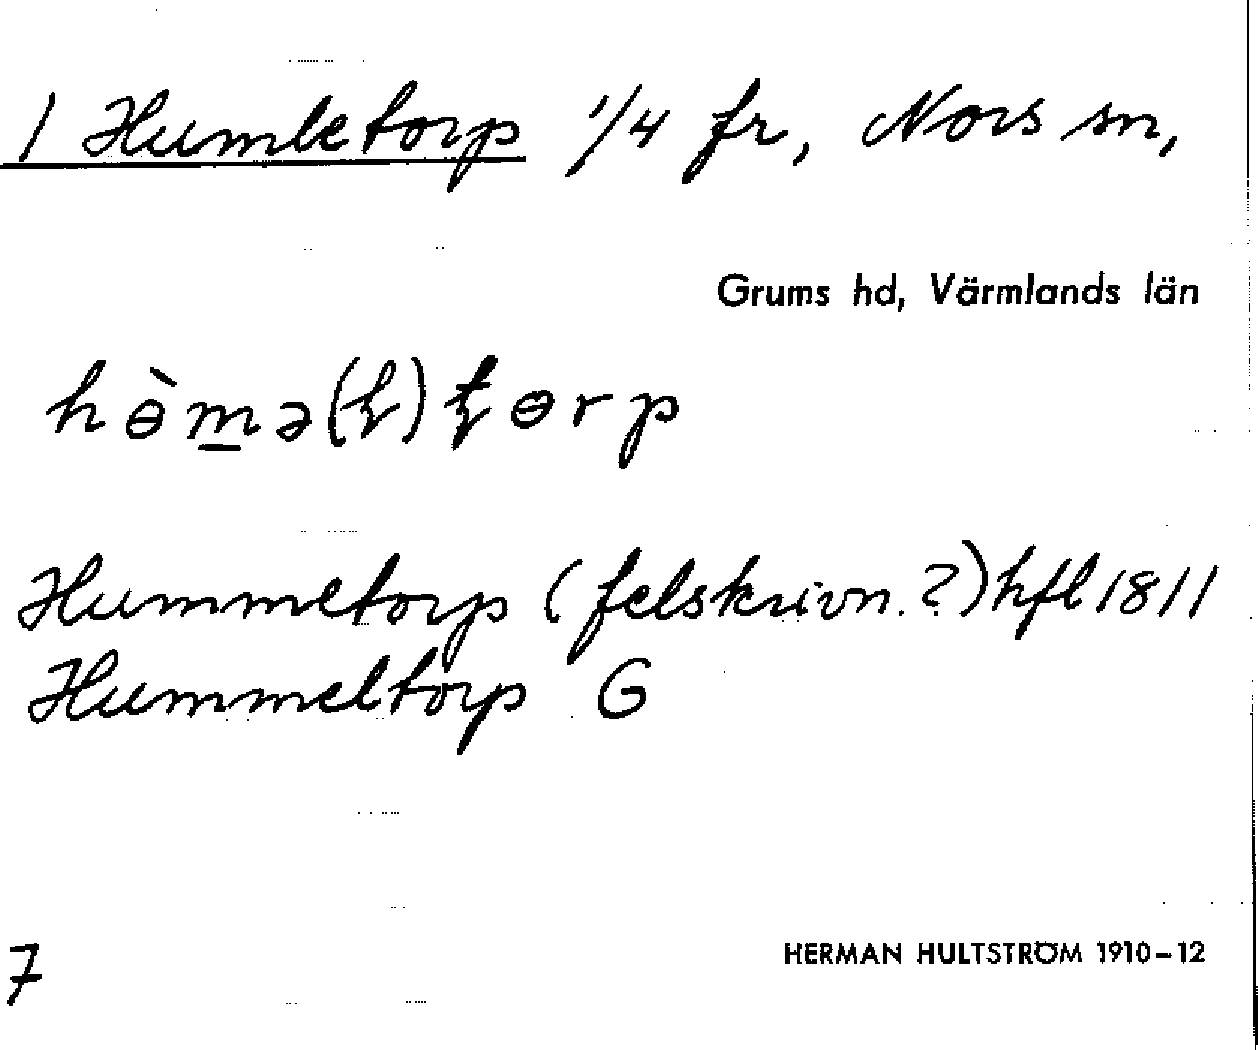 1 Humletorp 1/4 fr, Nors sn,
Grums hd, Värmlands län
hɵ̀m̲ə(ɽ)ʈɵrp
Hummetorp (felskrivn. ?) hfl 1811
Hummeltorp G
7
HERMAN HULTSTRÖM 1910–12